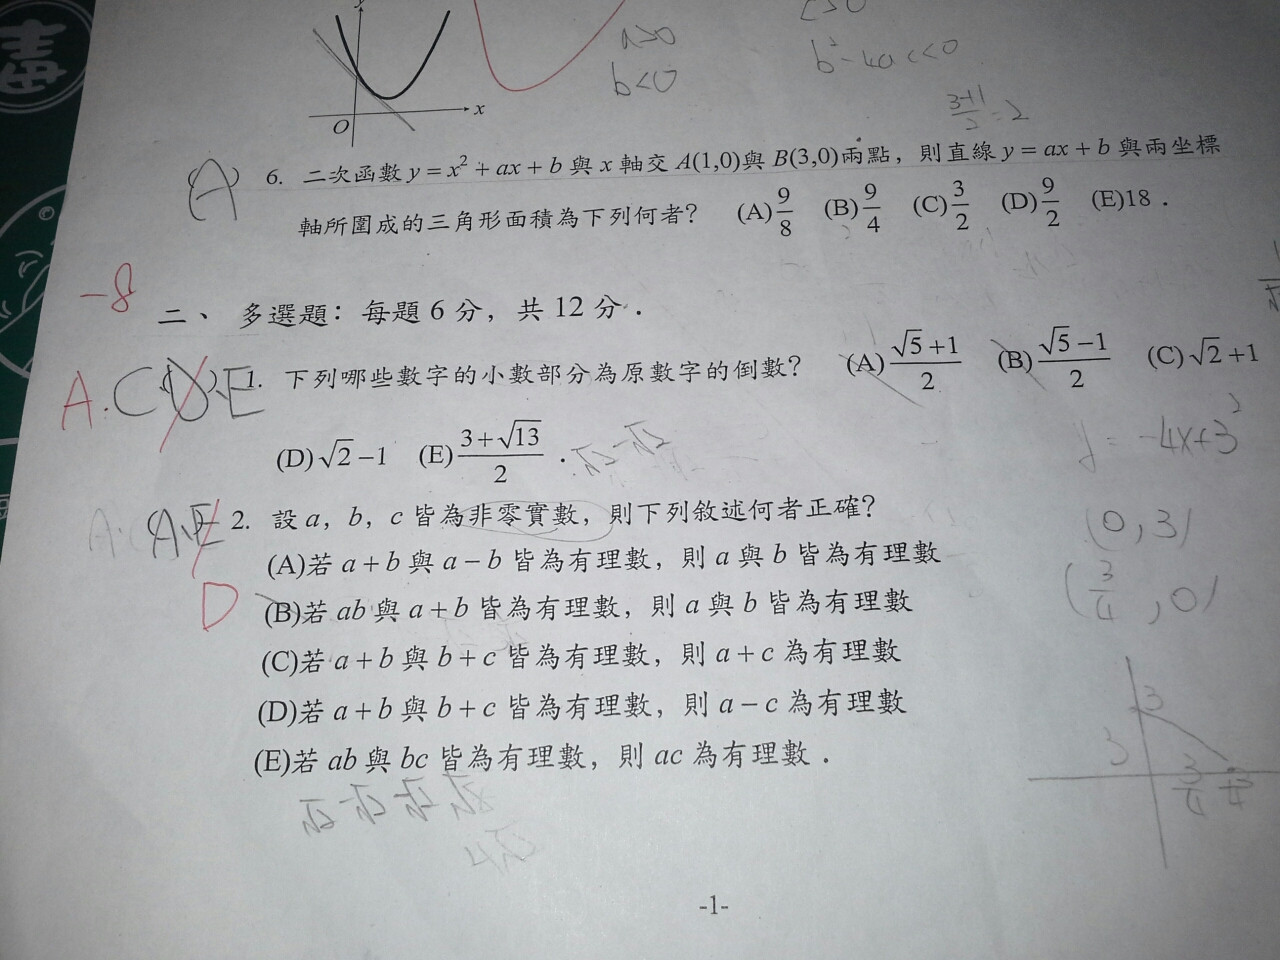 y
a>0
b<0
c>0
b²-4ac<0
x
O
3+1/2=2
(A) 6. 二次函數 y = x² + ax + b 與 x 軸交 A(1,0)與 B(3,0)兩點，則直線 y = ax + b 與兩坐標
軸所圍成的三角形面積為下列何者？ (A) 9/8 (B) 9/4 (C) 3/2 (D) 9/2 (E)18．
-8
二、 多選題：每題 6 分，共 12 分．
A.C(D)E 1. 下列哪些數字的小數部分為原數字的倒數？ (A) (√5+1)/2 (B) (√5-1)/2 (C) √2+1
(D) √2-1 (E) (3+√13)/2．
y=-4x+3
A.E 2. 設 a，b，c 皆為非零實數，則下列敘述何者正確？
D
(A)若 a+b 與 a-b 皆為有理數，則 a 與 b 皆為有理數
(B)若 ab 與 a+b 皆為有理數，則 a 與 b 皆為有理數
(C)若 a+b 與 b+c 皆為有理數，則 a+c 為有理數
(D)若 a+b 與 b+c 皆為有理數，則 a-c 為有理數
(E)若 ab 與 bc 皆為有理數，則 ac 為有理數．
(0,3)
(3/4,0)
3
3
3/4
-1-